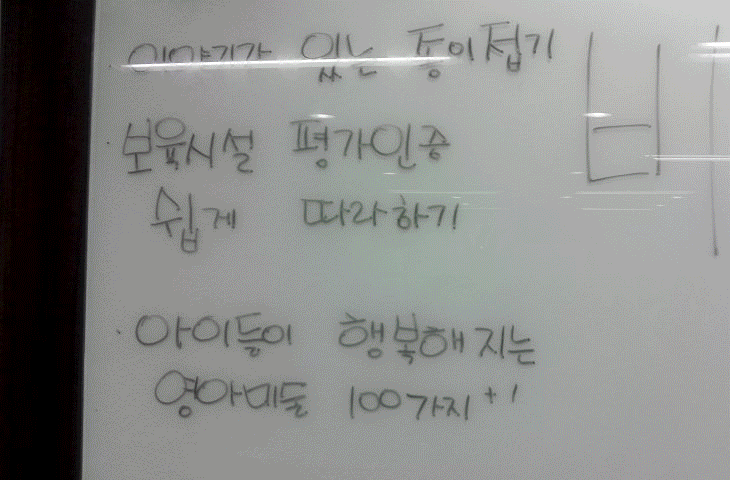 · 이야기가 있는 종이접기
· 보육시설 평가인증
쉽게 따라하기
· 아이들이 행복해지는
영아미술 100가지 +1
비